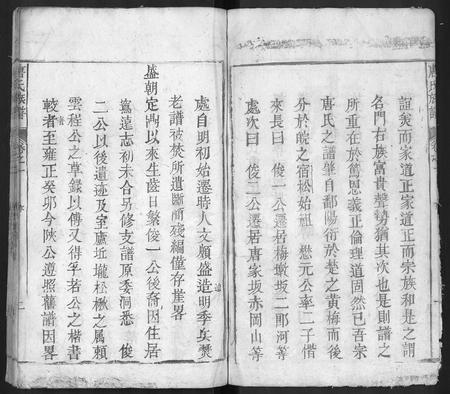 誼美而家道正家道正而宗族和是之謂
名門右族富貴聲勢猶其次也是則譜之
所重在於篤恩義正倫理道固然已吾宗
唐氏之譜肇自鄱陽衍於楚之黃梅而後
分於皖之宿松始祖 懋元公率二子惜
來長曰 俊一公遷居梅墩坂二郎河等
處次曰 俊二公遷居唐家坂赤岡山等
處自明初始遷時人文頗盛造明季兵燹
老譜被焚所遺斷簡殘編僅存崖畧
盛朝定鼎以來生齒日繁俊一公後裔因住居
寫遠志初未合另修支譜原委洞悉 俊
二公以後遺迹及室廬坵壠松楸之屬賴
雲程公之草錄以傳又得孚若公之楷書
較者至雍正癸卯今陝公遵照舊譜因畧
唐氏族譜 卷之一